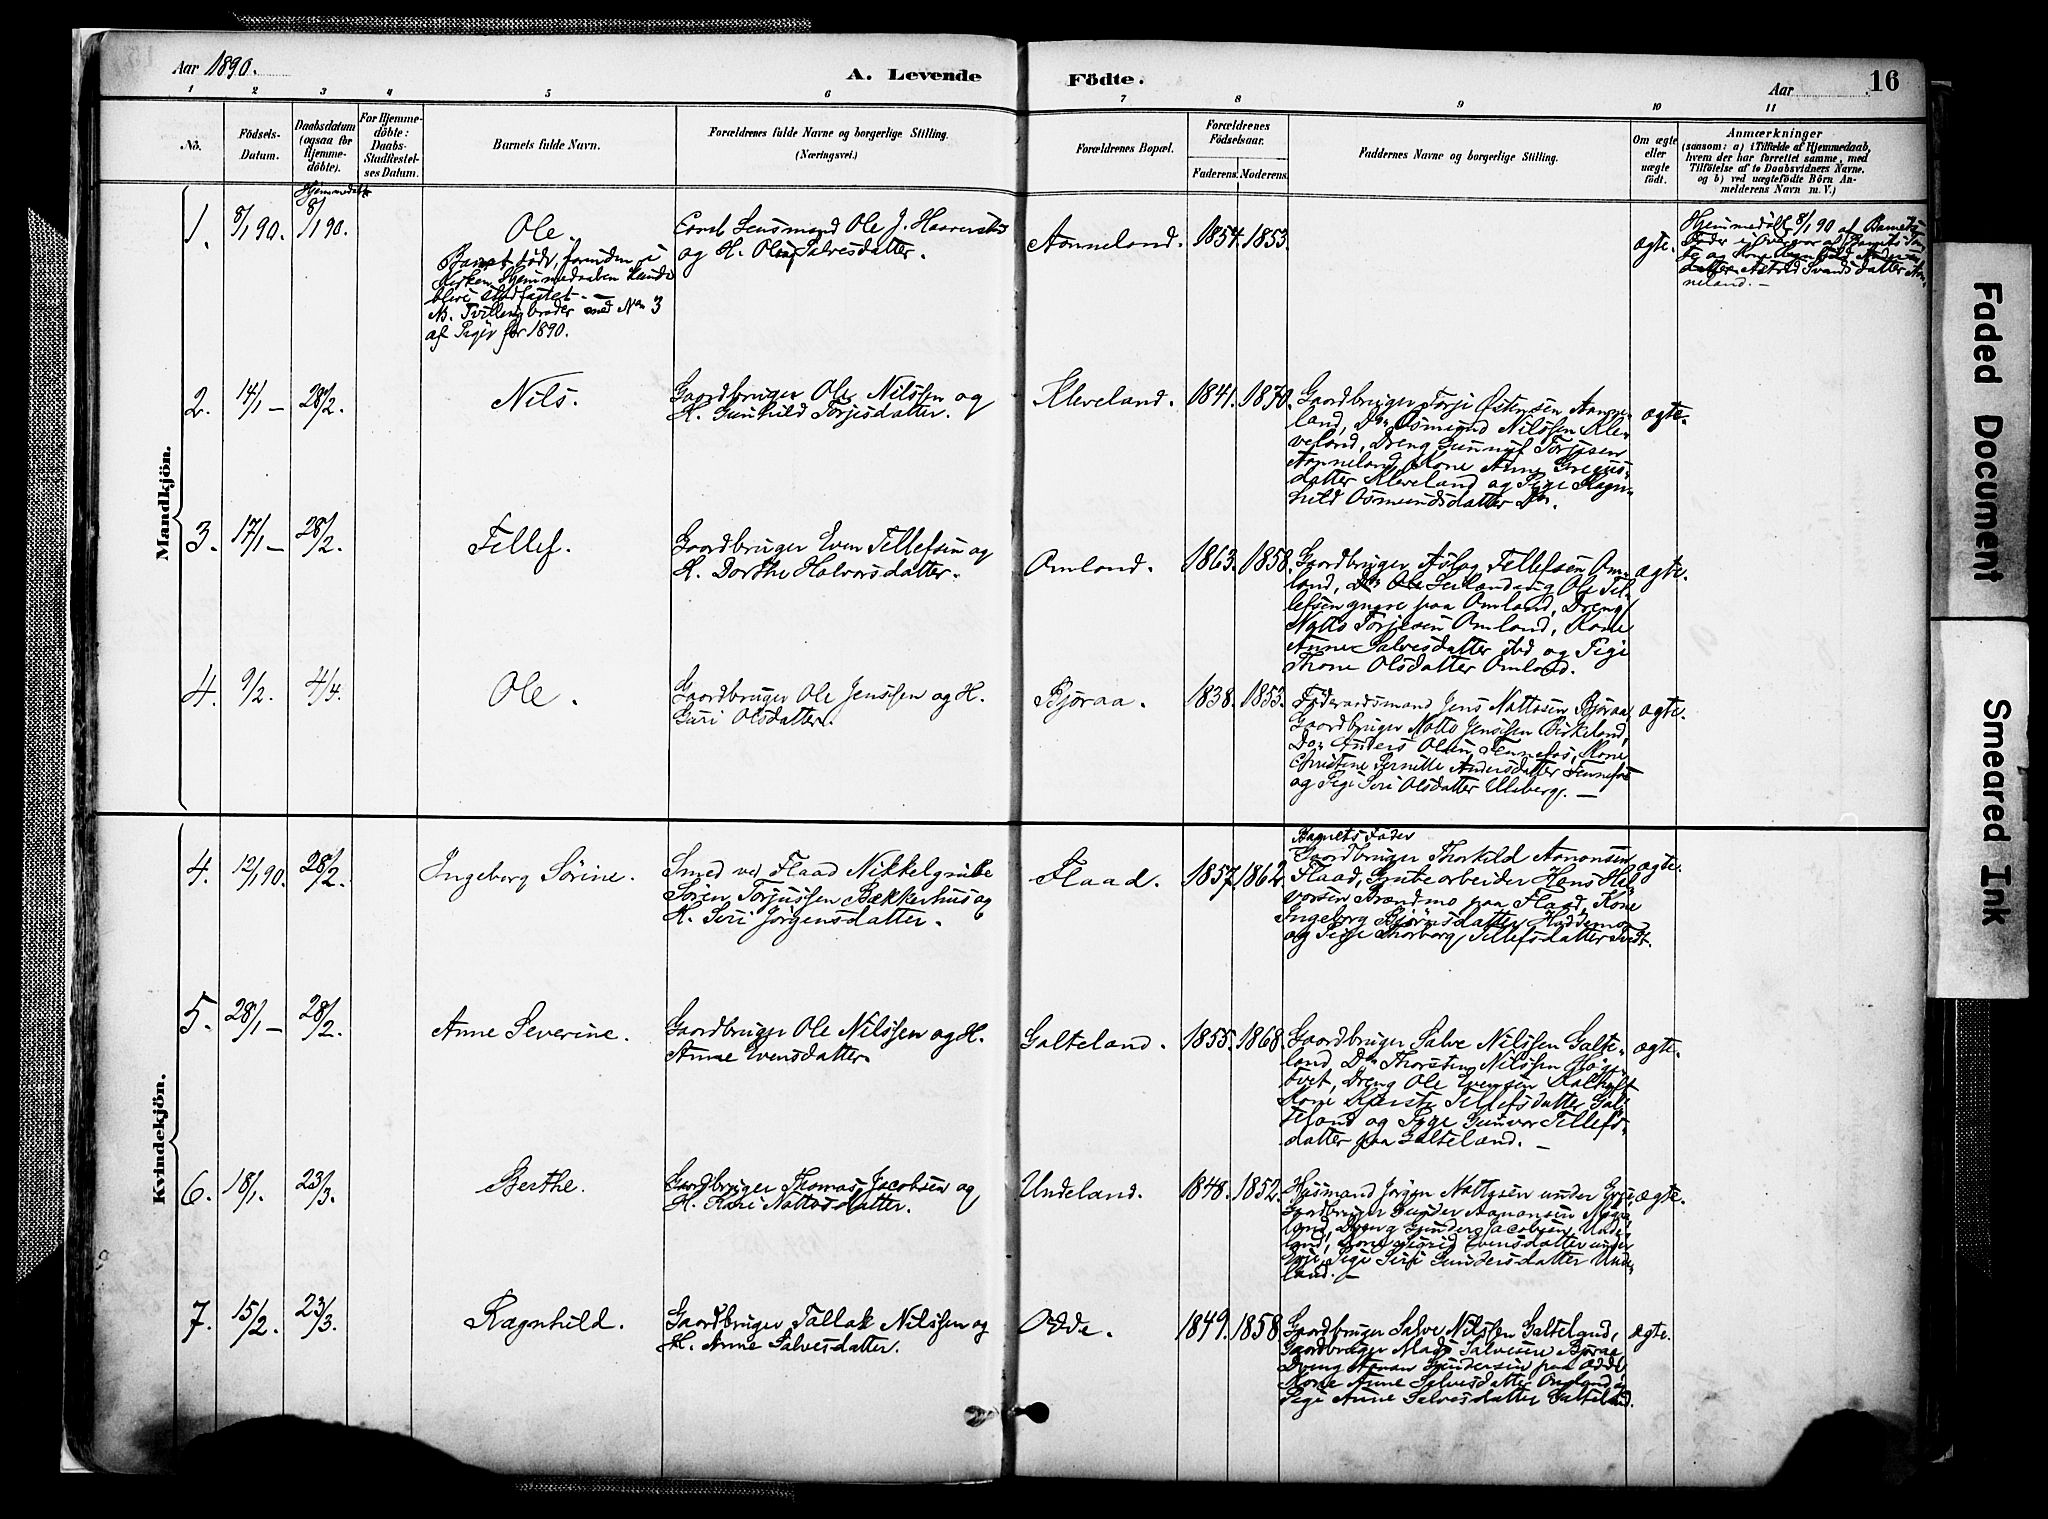 Aar 1890.
A. Levende Födte.
Aar
16
1 2 3 4 5 6 7 8 9 10 11
No.
Födsels-
Datum.
Daabsdatum
(ogsaa for
Hjemme-
döbte).
For Hjemme-
döbte:
Daabs-
Stadfæstel-
ses Datum.
Barnets fulde Navn.
Forældrenes fulde Navne og borgerlige Stilling.
(Næringsvei.)
Forældrenes Bopæl.
Forældrenes
Födselsaar.
Faderens. Moderens.
Faddernes Navne og borgerlige Stilling.
Om ægte
eller
uægte
födt.
Anmærkninger
(saasom: a) i Tilfælde af Hjemmedaab,
hvem der har forrettet samme, med
Tilföielse af to Daabsvidners Navne.
og b) ved uægtefödte Börn An-
melderens Navn m. V.)
Mandkjön.
1.
8/1 90.
Hjemmedøbt
8/1 90.
Ole.
Barnet døde, forinden i
Kirken Hjemmedaaben kunde
blive stadfæstet. —
NB. Tvillingbroder med No 3
af Piger for 1890.
Const Lensmand Ole J. Haverstad
og H. Olea Salvesdatter.
Aanneland.
1854. 1853.
ægte.
Hjemmedøbt 8/1 90 af Barnets
Fader
datter Astrid Svandsdatter Aan-
neland. —
2.
14/1 —
28/2.
Nils.
Gaardbruger Ole Nilssen og
H. Gunhild Torjesdatter.
Kleveland.
1841. 1870.
Gaardbruger Torje Østensen Aanne-
land, Do Osmund Nilssen Kle-
veland, Dreng Gunnuf Torjesen
Aanneland, Kone Anne Gregus-
datter Kleveland og Pige Ragn-
hild Osmundsdatter Do.
ægte.
3.
17/1 —
28/2.
Tellef.
Gaardbruger Even Tellefsen og
H. Dorthe Halvorsdatter.
Omland.
1863. 1858.
Gaardbruger Aslag Tellefsen Om-
land, Do Ole Tel-
lefsen yngre paa Omland, Dreng
Notto Torjesen Omland, Kone
Anne Salvesdatter ibd og Pige
Thone Olsdatter Omland.
ægte.
4.
9/2.
4/4.
Ole.
Gaardbruger Ole Jenssen og H.
Guri Olsdatter.
Bjøraa.
1838. 1853.
Føderaadsmand Jens Nottosen Bjøraa,
Gaardbruger Notto Jenssen Birkeland,
Do Anders Olsen Fennefos, Kone
Christine Pernille Andersdatter Fennefos
og Pige Siri Olsdatter Uleberg. —
ægte.
Kvindekjön.
4.
12/1 90.
28/2.
Ingeborg Sørine.
Smed ved Flaad Nikkelgrube
Søren Torjussen Bakkerhus og
H. Siri Jørgensdatter.
Flaad.
1857. 1862.
Barnets Fader
Gaardbruger Thorkild Aanonsen
Flaad, Grubearbeider Hans Hal-
vorsen Brandmo paa Flaad, Kone
Ingeborg Bjørnsdatter Hoddemo
og Pige Thorborg Tellefsdatter Tvedt.
ægte.
5.
28/1 —
28/2.
Anne Severine.
Gaardbruger Ole Nilssen og H.
Anne Evensdatter.
Galteland.
1855. 1868.
Gaardbruger Salve Nilssen Galte-
land, Do Thorsten Nilssen Høge-
tvet, Dreng Ole Evensen Kalhoft
Kone Kjersti Tellefsdatter Gal-
teland og Pige Gunvor Tellefs-
datter paa Galteland. —
ægte.
6.
18/1.
23/3.
Berthe.
Gaardbruger Thomas Jacobsen og
H. Kari Nottosdatter.
Undeland.
1848. 1852.
Husmand Jørgen Nottosen under Evje,
Gaardbruger Gunder Aanonsen
land, Dreng Gunder Jacobsen Unde-
land, Kone Sigrid Evensdatter under
Evje, Pige Siri Gundersdatter Unde-
land. —
ægte.
7.
15/2.
23/3.
Ragnhild.
Gaardbruger Tallak Nilssen og
H. Anne Salvesdatter.
Odde.
1849. 1858.
Gaardbruger Salve Nilssen Galteland,
Gaardbruger Mads Salvesen Bjøraa,
Dreng Aanon Gundersen paa Odde,
Kone Anne Salvesdatter Omland og
Pige Anne Salvesdatter Galteland.
ægte.
Faded Document
Smeared Ink